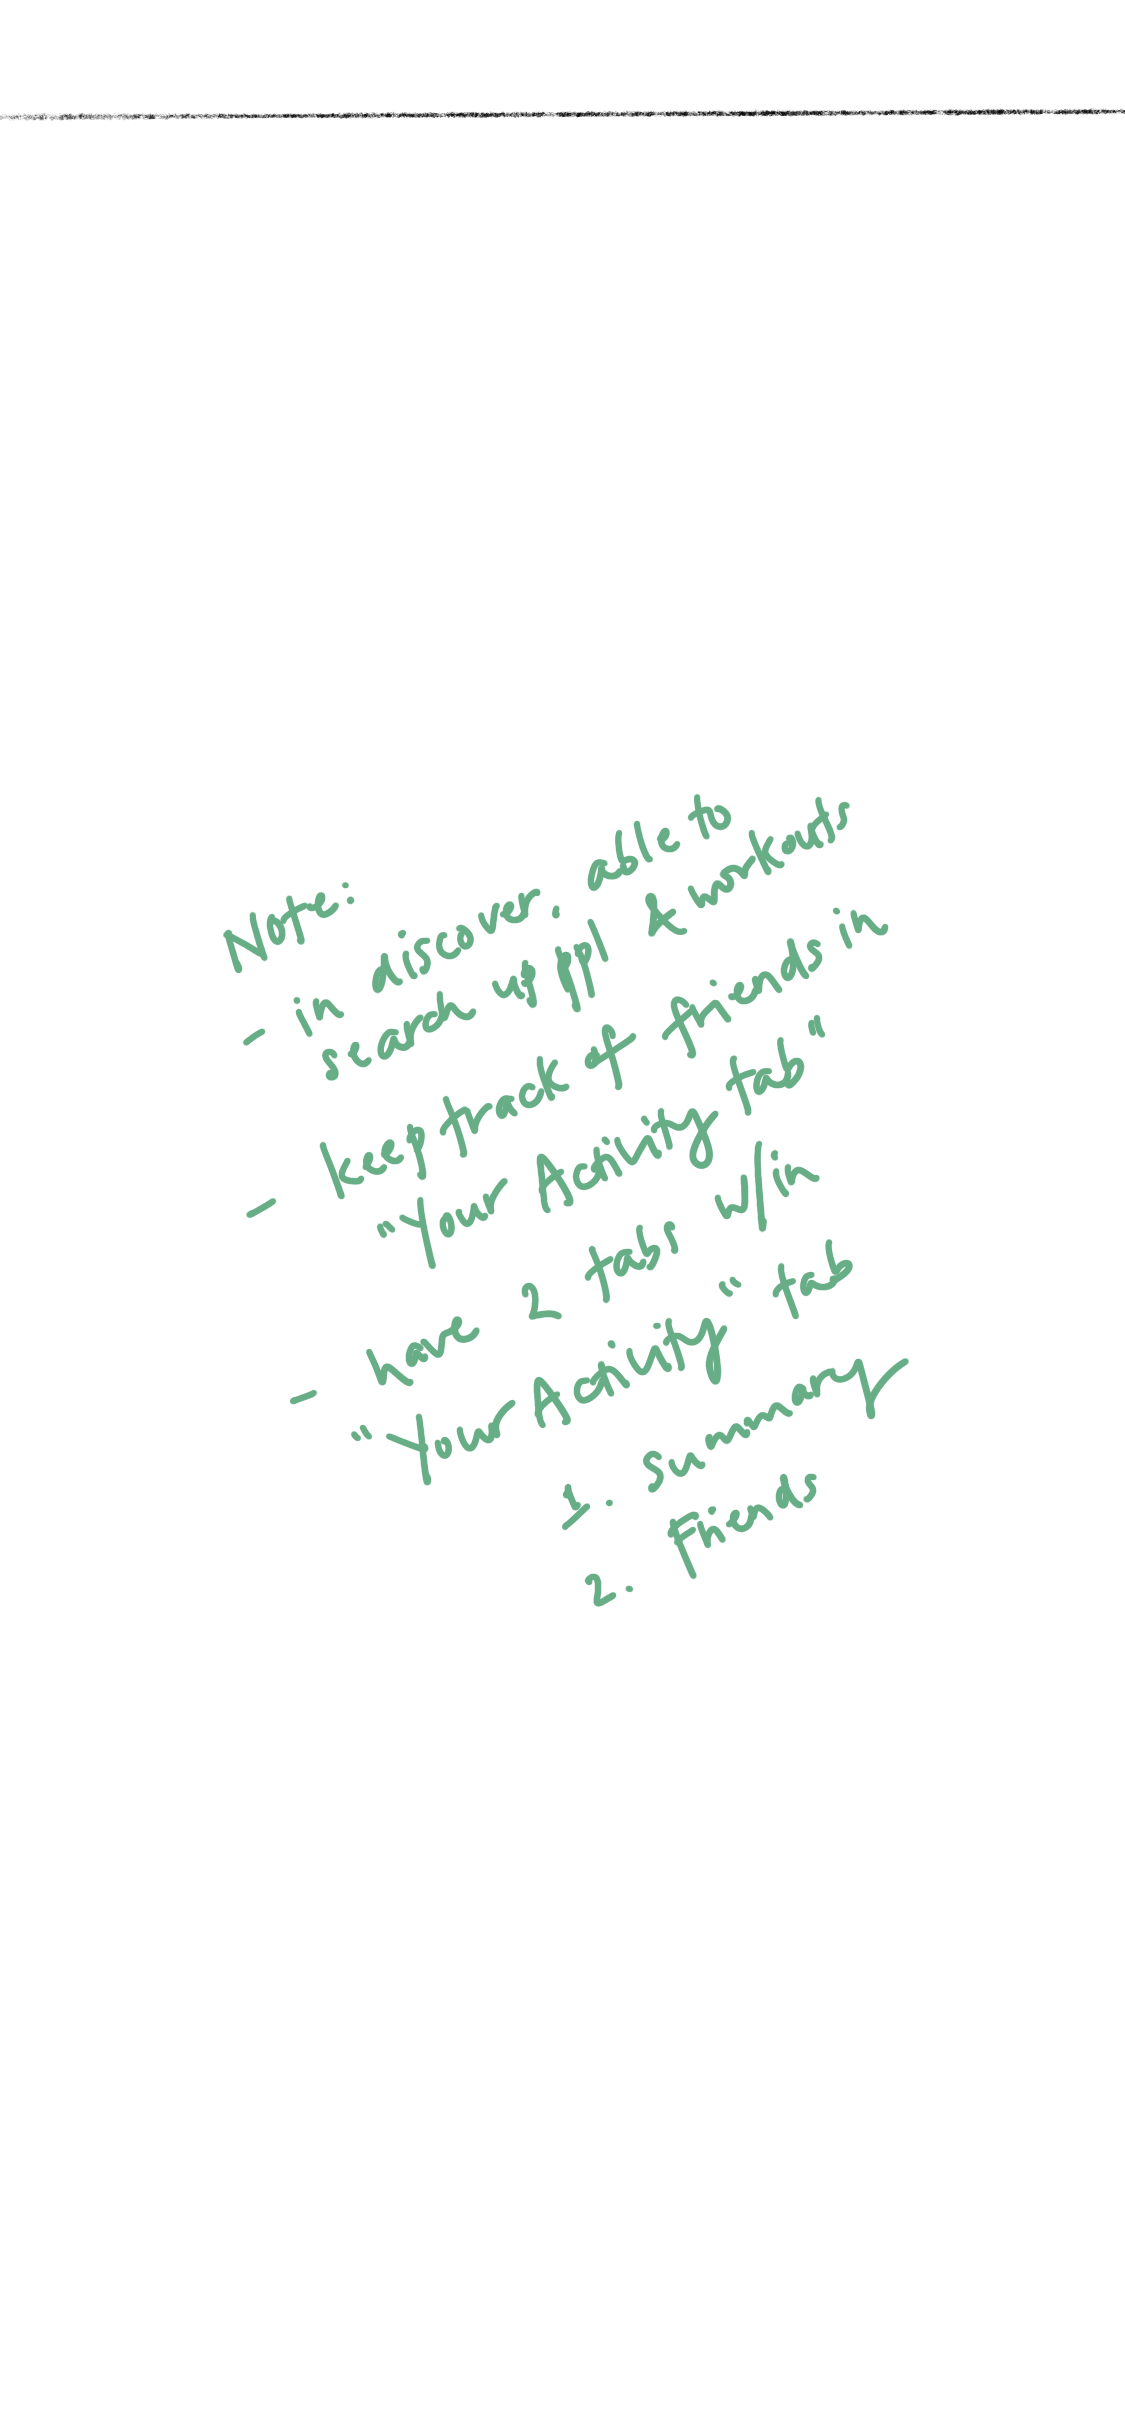 Note:
- in discover, able to
search up ppl & workouts
- keep track of friends in
"Your Activity tab"
- have 2 tabs w/in
"Your Activity" tab
1. summary
2. Friends